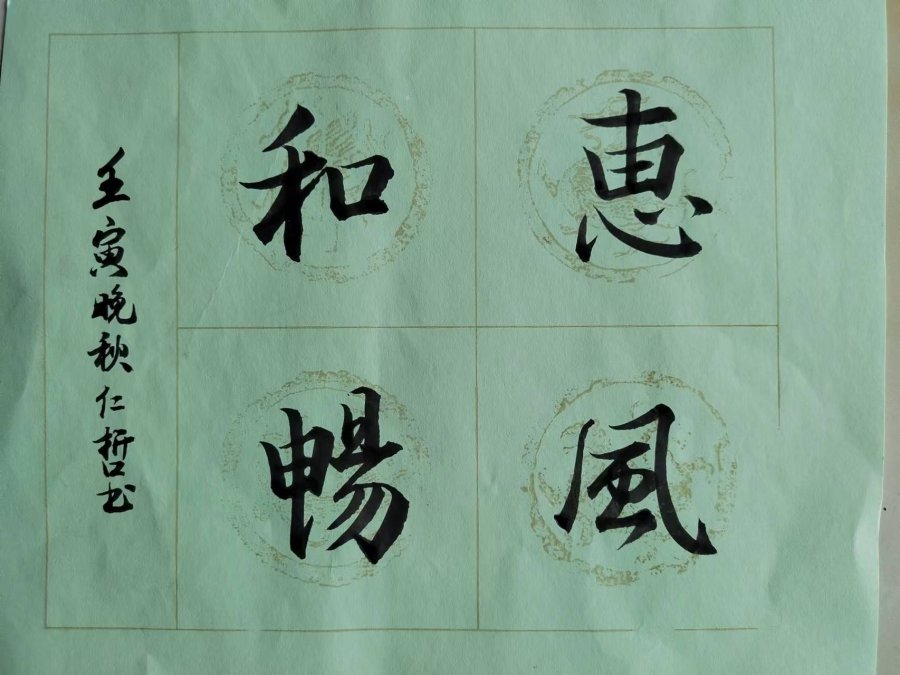 惠風
和暢
壬寅晚秋仁哲书